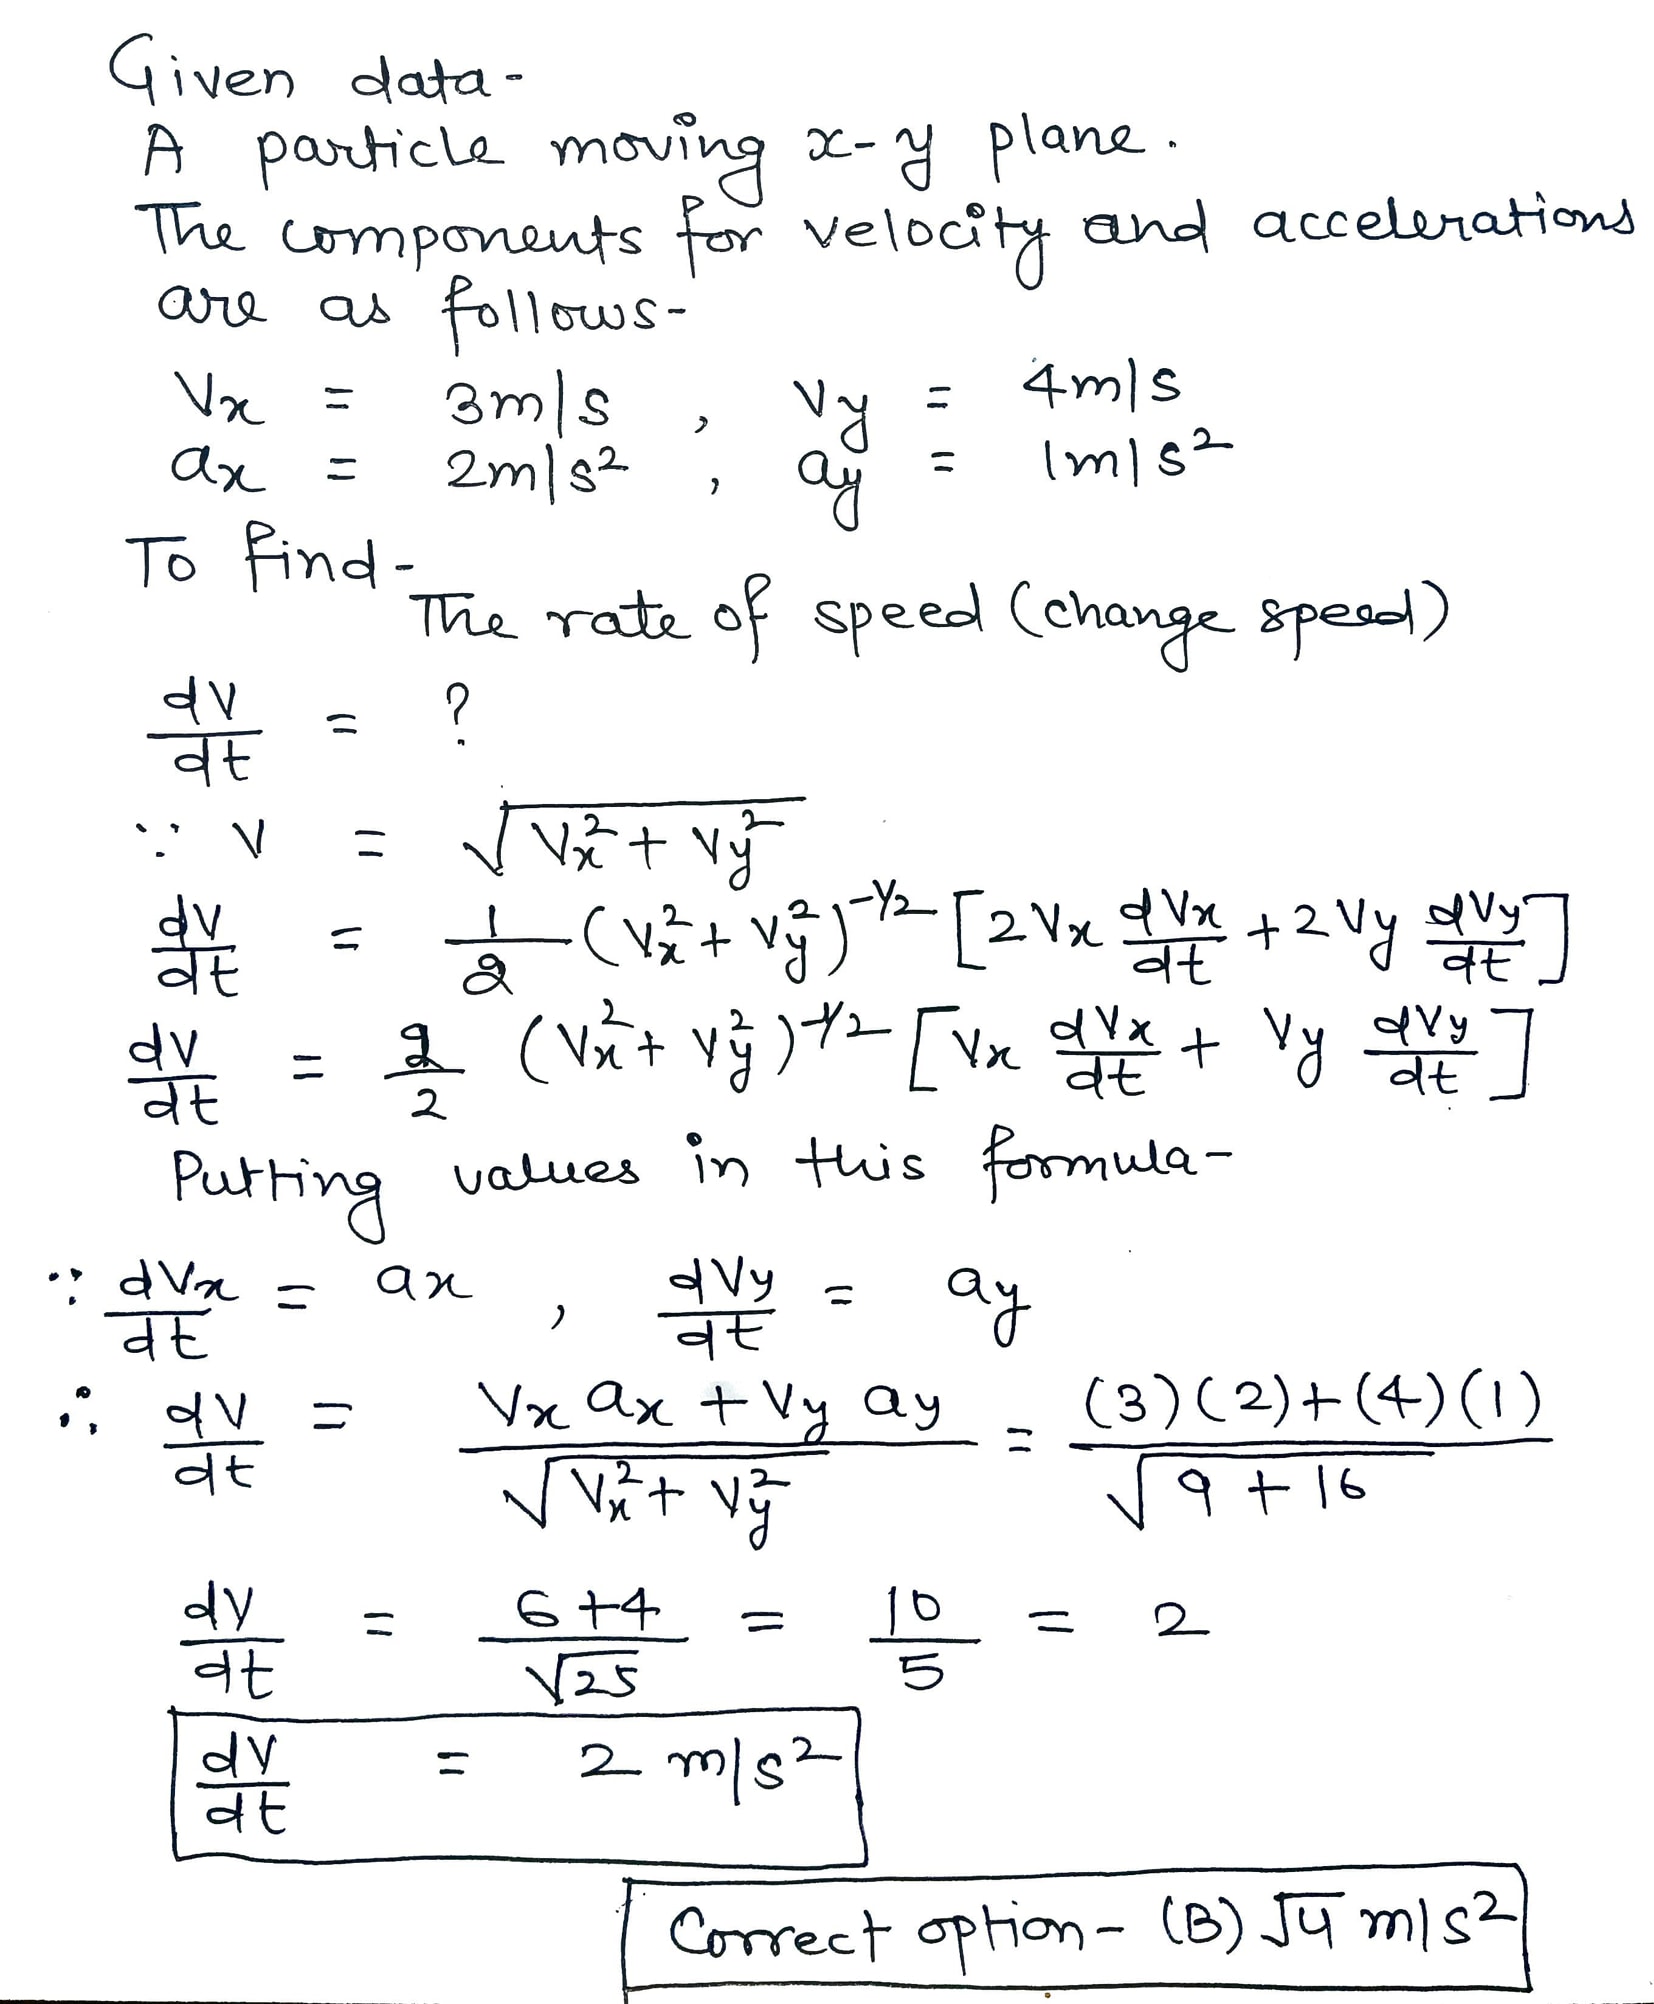 Given data-
A particle moving x-y plane.
The components for velocity and accelerations
are as follows-
Vx = 3m/s , Vy = 4m/s
ax = 2m/s² , ay = 1m/s²
To find-
The rate of speed (change speed)
dv/dt = ?
∵ v = √(Vx² + Vy²)
dv/dt = 1/2 (Vx² + Vy²)^(-1/2) [2Vx dVx/dt + 2Vy dVy/dt]
dv/dt = 2/2 (Vx² + Vy²)^(-1/2) [Vx dVx/dt + Vy dVy/dt]
Putting values in this formula-
∵ dVx/dt = ax , dVy/dt = ay
∴ dv/dt = (Vx ax + Vy ay)/√(Vx² + Vy²) = ((3)(2)+(4)(1))/√(9+16)
dv/dt = (6+4)/√25 = 10/5 = 2
dv/dt = 2 m/s²
Correct option- (B) √4 m/s²